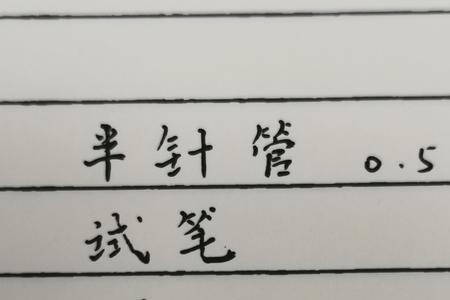 半针管 0.5
试笔